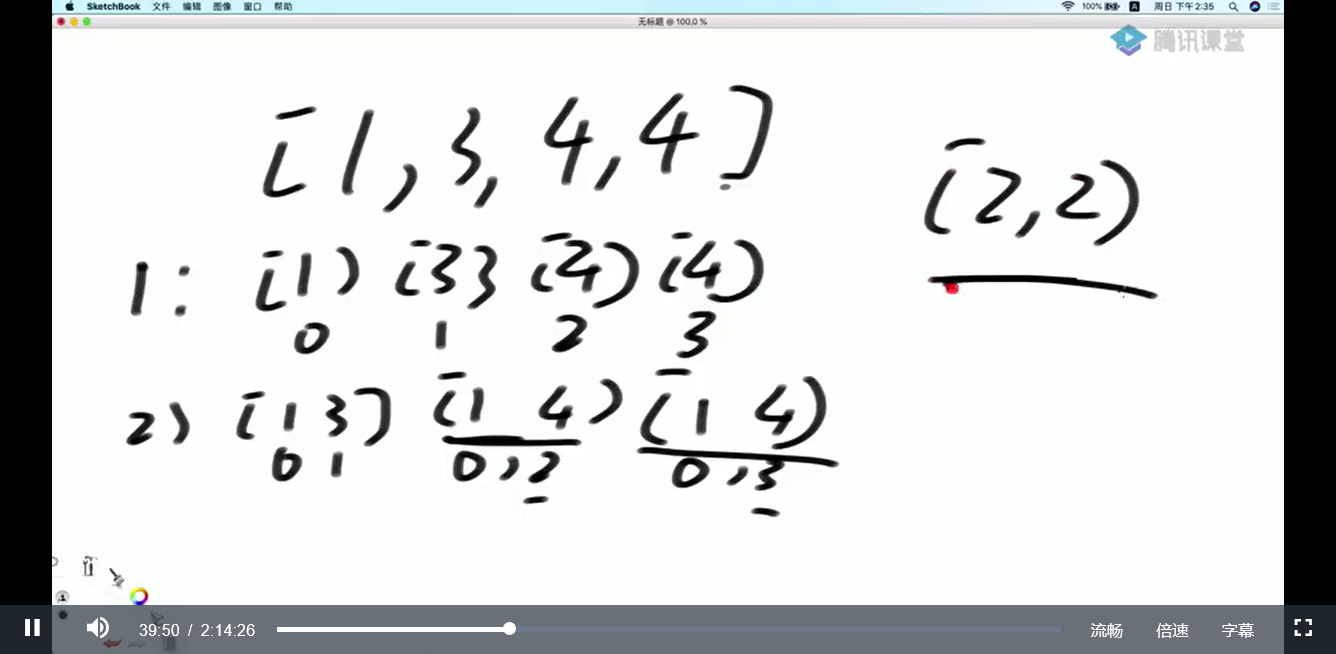 SketchBook 文件 编辑 图像 窗口 帮助 100% A 周日 下午2:35
无标题 @ 100.0 %
腾讯课堂
[1, 3, 4, 4]
(2, 2)
1: [1) [3} [4) [4)
0 1 2 3
2) [1 3] [1 4) [1 4)
0 1 0,2 0,3
39:50 / 2:14:26 流畅 倍速 字幕